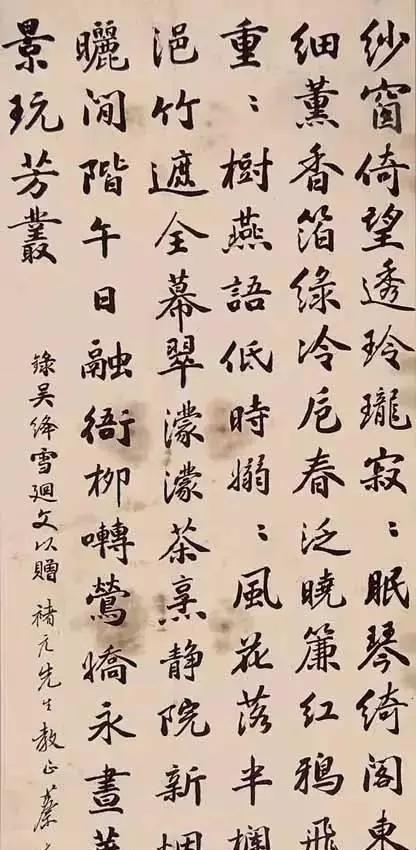 紗窗倚望透玲瓏寂〻眠琴綺閣東
細薰香箔綠冷卮春泛曉簾紅鴉飛
重〻樹燕語低時嫋〻風花落半欄
浥竹遮全幕翠濛濛茶烹静院新烟
曬閒階午日融衘柳囀鶯嬌永晝
景玩芳叢
錄吳絳雪廻文以贈 先生教正 蔡